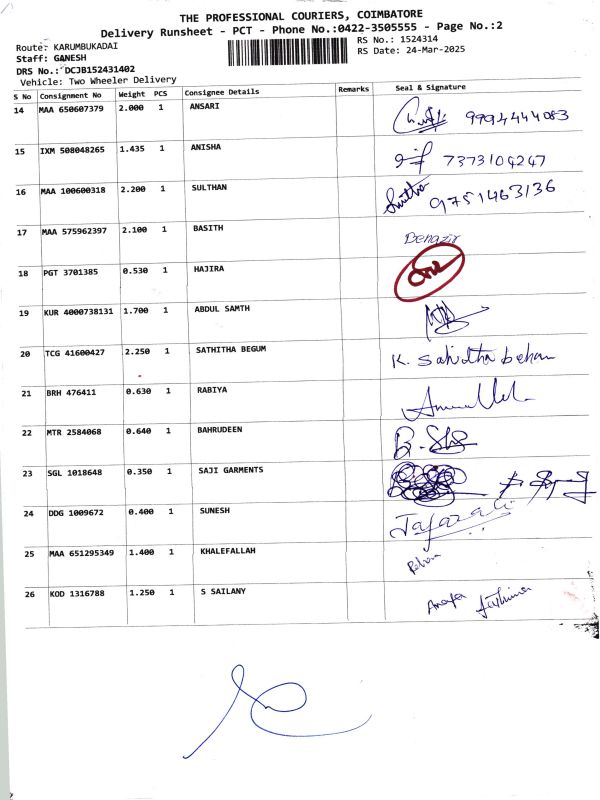 THE PROFESSIONAL COURIERS, COIMBATORE
Delivery Runsheet - PCT - Phone No.:0422-3505555 - Page No.:2
Route: KARUMBUKADAI
RS No.: 1524314
Staff: GANESH
RS Date: 24-Mar-2025
DRS No.: DCJB152431402
Vehicle: Two Wheeler Delivery
S No Consignment No Weight PCS Consignee Details Remarks Seal & Signature
14 MAA 650607379 2.000 1 ANSARI 9994444083
15 IXM 508048265 1.435 1 ANISHA 7373104247
16 MAA 100600318 2.200 1 SULTHAN 9751463136
17 MAA 575962397 2.100 1 BASITH Benazir
18 PGT 3701385 0.530 1 HAJIRA
19 KUR 4000738131 1.700 1 ABDUL SAMTH
20 TCG 41600427 2.250 1 SATHITHA BEGUM K. Sahidtha beham
21 BRH 476411 0.630 1 RABIYA
22 MTR 2584068 0.640 1 BAHRUDEEN
23 SGL 1018648 0.350 1 SAJI GARMENTS
24 DDG 1009672 0.400 1 SUNESH Jafarali
25 MAA 651295349 1.400 1 KHALEFALLAH
26 KOD 1316788 1.250 1 S SAILANY